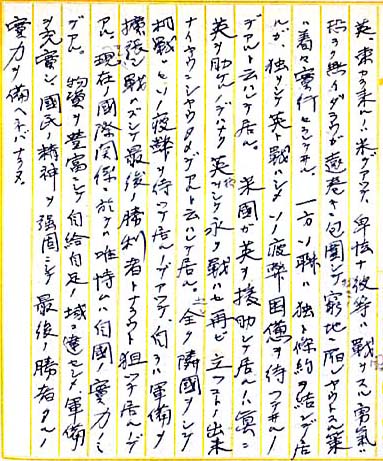 英、東カラ来ルハ米デアツテ、卑怯ナ彼等ハ戦ヲスル勇気ハ
恐ラク無イダラウガ遠巻キニ包囲シテ窮地ニ陥シヤウトスル策
ハ着々実行セラレテヰル。一方ソ聯ハ独ト條約ヲ結ンデ居
ルガ、独ヲシテ英ト戦ハシメソノ疲弊困憊ヲ待ツテヰルノ
デアルト云ハレテ居ル。米国ガ英ヲ援助シテ居ルノハ真ニ
英ヲ助ケルノデナク英ヲシテ永ク戦ハセ再ビ立ツコトノ出来
ナイヤウニシヤウタメデアルト云ハレテ居ル。全ク隣国ヲシテ
相戦ハセソノ疲弊ヲ待ツテ居ルノデアツテ、自ラハ軍備ヲ
擴張シ戦ハズシテ最後ノ勝利者トナラウト狙ツテ居ルノデ
アル。現在ノ國際関係ニ於テハ唯恃ムハ自國ノ實力ノミ
デアル。物資ヲ豊富ニシテ自給自足ノ域ニ達セシメ軍備
ヲ充實シ國民ノ精神ヲ強固ニシテ最後ノ勝者タルノ
實力ヲ備ヘネバナラヌ